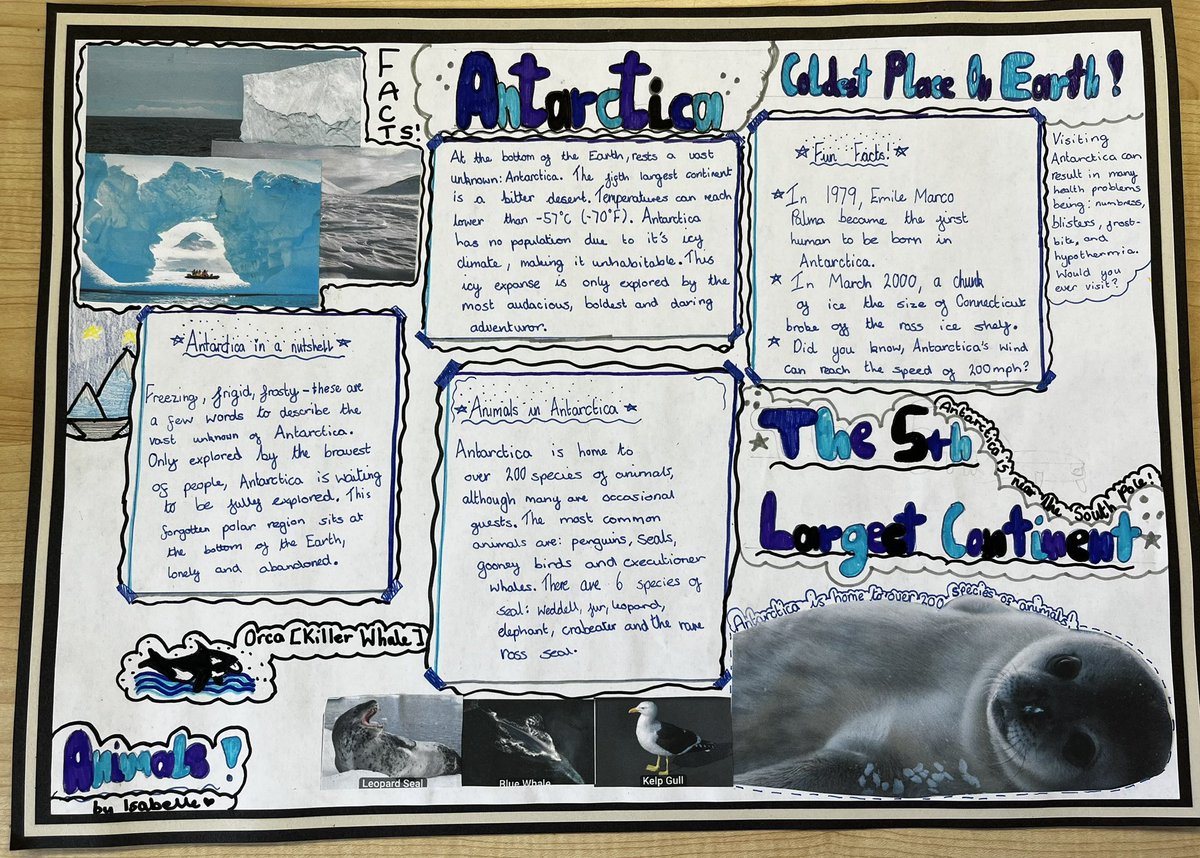 FACTS!
Antarctica
Coldest Place On Earth!
At the bottom of the Earth, rests a vast
unknown: Antarctica. The fifth largest continent
is a bitter desert. Temperatures can reach
lower than -57°C (-70°F). Antarctica
has no population due to it's icy
climate, making it unhabitable. This
icy expanse is only explored by the
most audacious, boldest and daring
adventuror.
Fun Facts!
In 1979, Emile Marco
Palma became the first
human to be born in
Antarctica.
In March 2000, a chunk
of ice the size of Connecticut
broke off the ross ice shelf.
Did you know, Antarctica's wind
can reach the speed of 200mph?
Visiting
Antarctica can
result in many
health problems
being: numbness,
blisters, frost-
bite, and
hypothermia.
Would you
ever visit?
Antartica in a nutshell
Freezing, frigid, frosty - these are
a few words to describe the
vast unknown of Antarctica.
Only explored by the bravest
of people, Antarctica is waiting
to be fully explored. This
forgotten polar region sits at
the bottom of the Earth,
lonely and abandoned.
Animals in Antarctica
Antarctica is home to
over 200 species of animals,
although many are occasional
guests. The most common
animals are: penguins, seals,
gooney birds and executioner
whales. There are 6 species of
seal: weddell, fur, leopard,
elephant, crabeater and the rare
ross seal.
The 5th
Largest Continent
Antarctica is near the South Pole!
Antarctica is home to over 200 species of animals!
Orca [Killer Whale]
Leopard Seal
Blue Whale
Kelp Gull
Animals!
by Isabelle